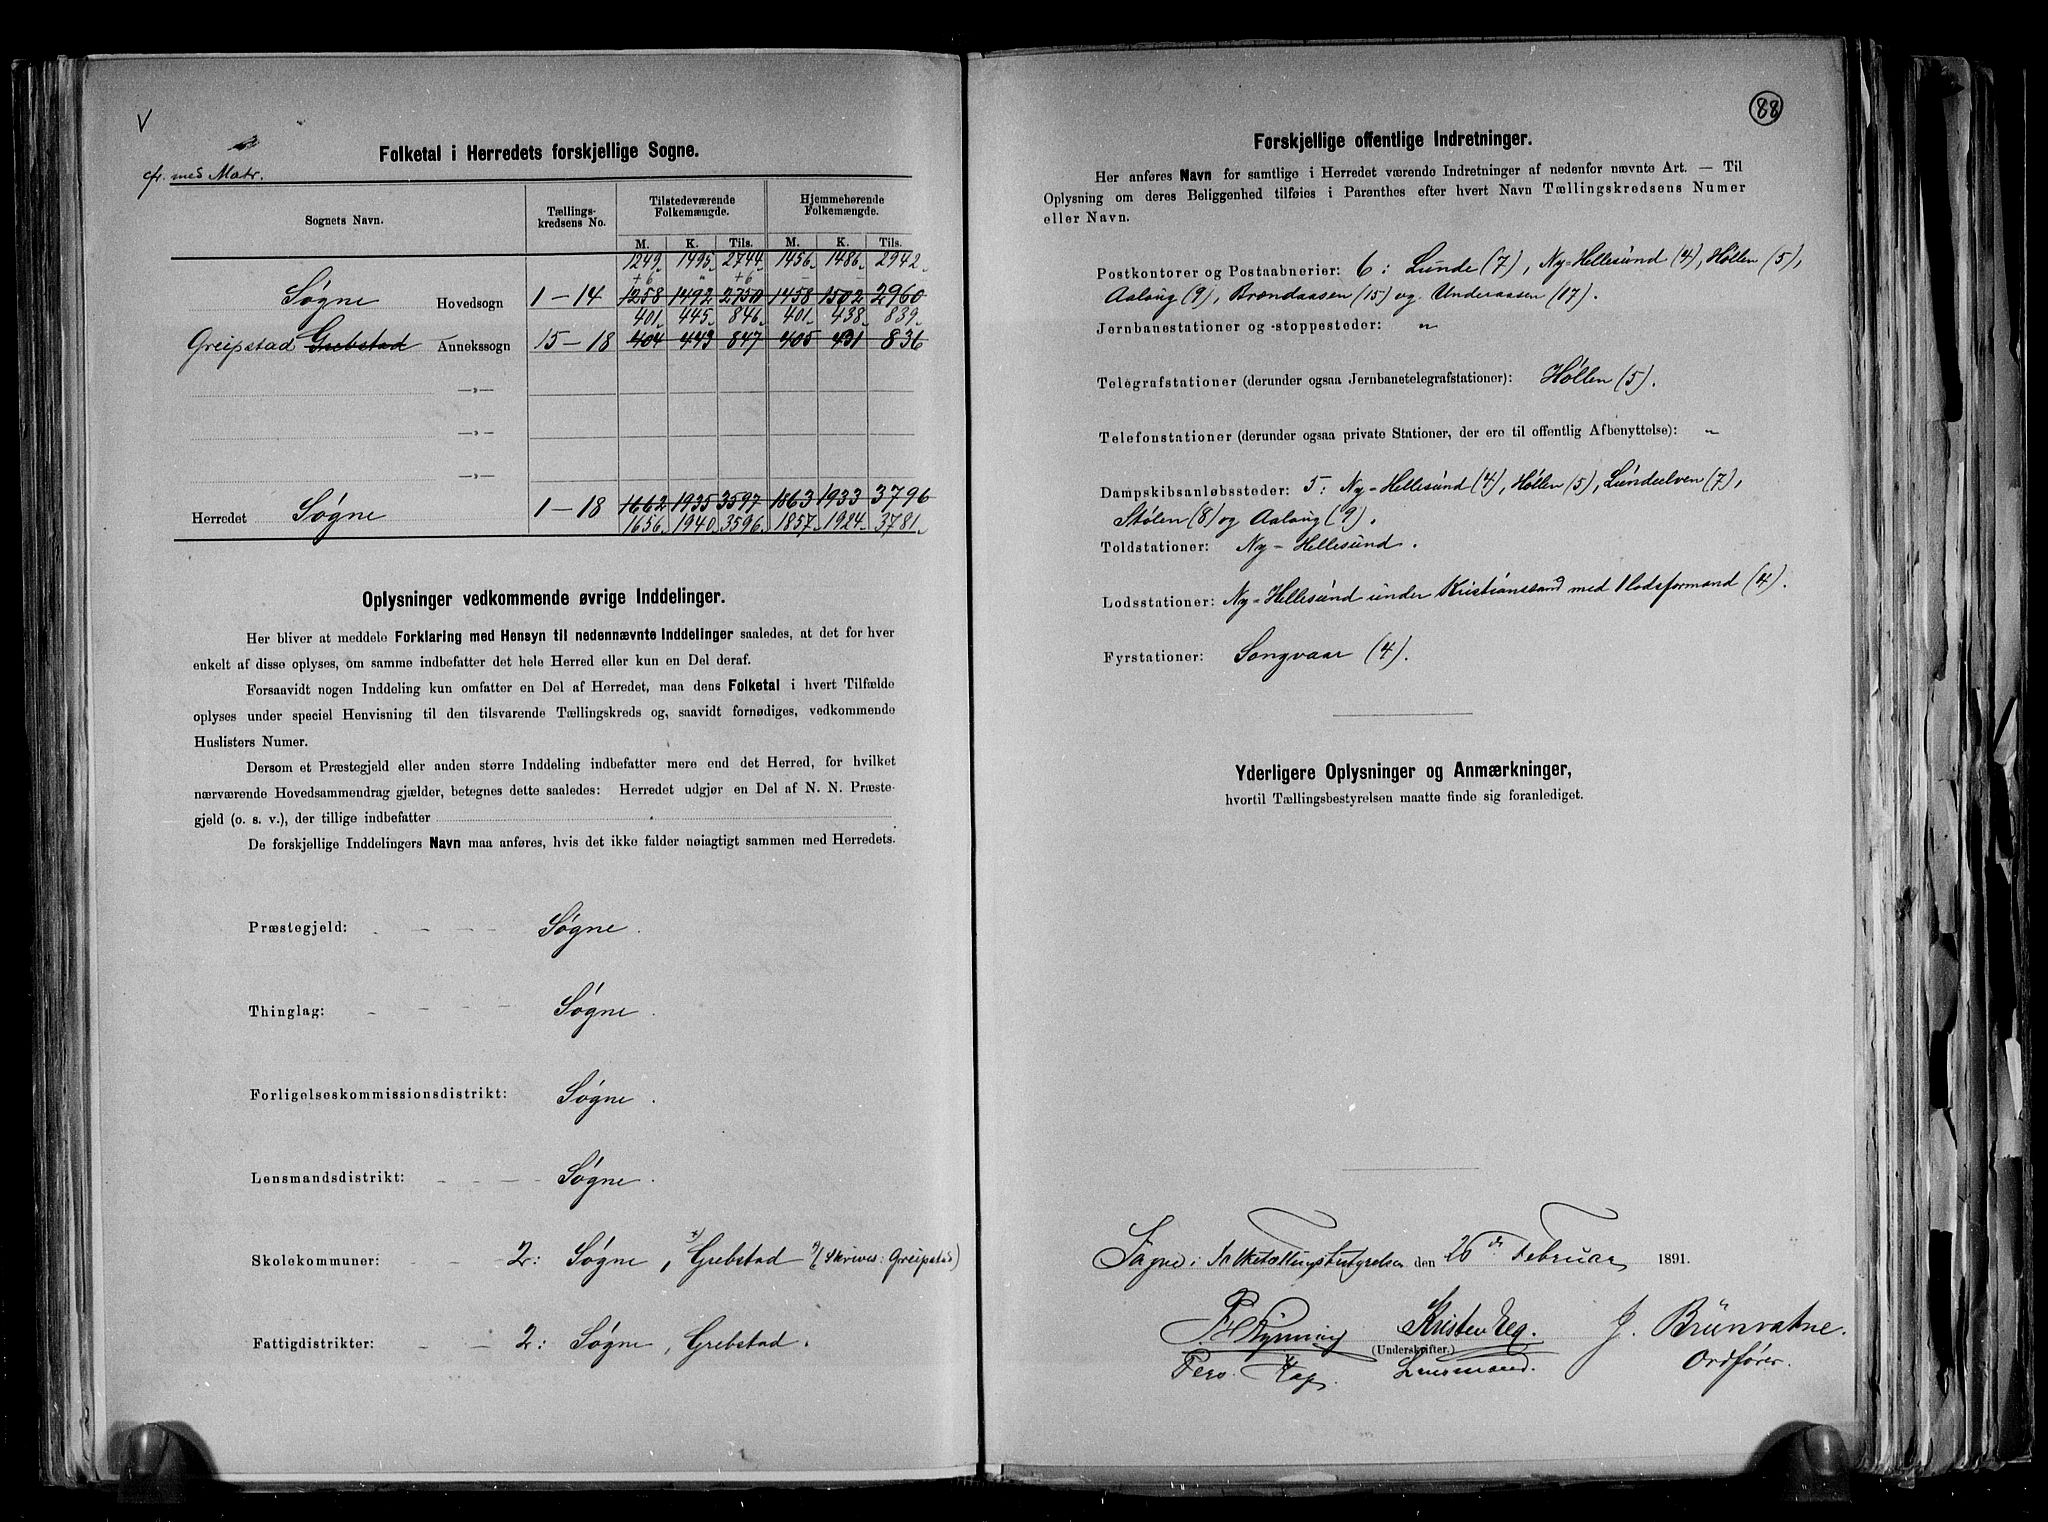 V
Folketal i Herredets forskjellige Sogne.
cfr. med Matr.
Sognets Navn. Tællingskredsens No. Tilstedeværende Folkemængde. Hjemmehørende Folkemængde.
M. K. Tils. M. K. Tils.
1249. 1495. 2744. 1456. 1486. 2942.
+6 " +6 – –
Søgne Hovedsogn 1–14 1258 1492 2750 1458 1502 2960
401. 445. 846. 401. 438. 839.
Greipstad Grebstad Annekssogn 15–18 404 443 847 405 431 836
—»—
—»—
—»—
Herredet Søgne 1–18 1662 1935 3597 1863 1933 3796
1656. 1940. 3596. 1857. 1924. 3781.
Oplysninger vedkommende øvrige Inddelinger.
Her bliver at meddele Forklaring med Hensyn til nedennævnte Inddelinger saaledes, at det for hver
enkelt af disse oplyses, om samme indbefatter det hele Herred eller kun en Del deraf.
Forsaavidt nogen Inddeling kun omfatter en Del af Herredet, maa dens Folketal i hvert Tilfælde
oplyses under speciel Henvisning til den tilsvarende Tællingskreds og, saavidt fornødiges, vedkommende
Huslisters Numer.
Dersom et Præstegjeld eller anden større Inddeling indbefatter mere end det Herred, for hvilket
nærværende Hovedsammendrag gjælder, betegnes dette saaledes: Herredet udgjør en Del af N. N. Præste-
gjeld (o. s. v.), der tillige indbefatter
De forskjellige Inddelingers Navn maa anføres, hvis det ikke falder nøiagtigt sammen med Herredets.
Præstegjeld: Søgne.
Thinglag: Søgne.
Forligelseskommissionsdistrikt: Søgne.
Lensmandsdistrikt: Søgne.
Skolekommuner: 2: Søgne, Grebstad (Skrives: Greipstad)
Fattigdistrikter: 2: Søgne, Grebstad.
88
Forskjellige offentlige Indretninger.
Her anføres Navn for samtlige i Herredet værende Indretninger af nedenfor nævnte Art. — Til
Oplysning om deres Beliggenhed tilføies i Parenthes efter hvert Navn Tællingskredsens Numer
eller Navn.
Postkontorer og Postaabnerier: 6: Lunde (7), Ny-Hellesund (4), Høllen (5),
Aaløug (9), Brændaasen (15) og Underaasen (17).
Jernbanestationer og -stoppesteder: "
Telegrafstationer (derunder ogsaa Jernbanetelegrafstationer): Høllen (5).
Telefonstationer (derunder ogsaa private Stationer, der ere til offentlig Afbenyttelse): "
Dampskibsanløbssteder: 5: Ny-Hellesund (4), Høllen (5), Lundeelven (7),
Stølen (8) og Aaløug (9).
Toldstationer: Ny-Hellesund.
Lodsstationer: Ny-Hellesund under Kristianssand med 1 lodsformand (4).
Fyrstationer: Songvaar (4).
Yderligere Oplysninger og Anmærkninger,
hvortil Tællingsbestyrelsen maatte finde sig foranlediget.
Søgne i Folketællingsbestyrelsen den 26de Februar 1891.
Kristen Eeg. J. Brünvatne.
(Underskrifter.)
Pers. Kap. Lensmand. Ordfører.